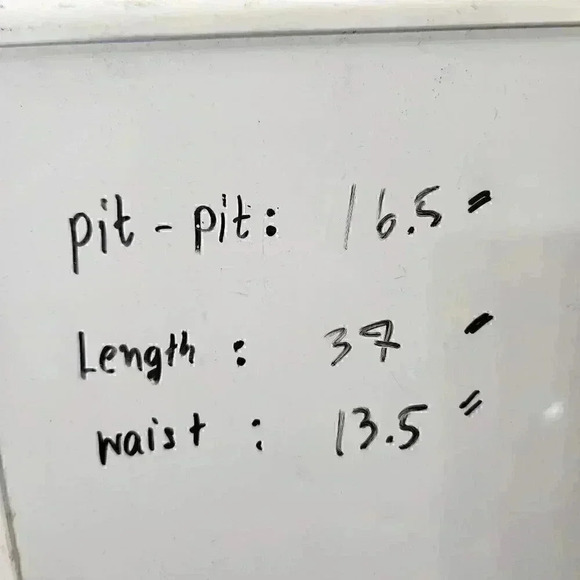 pit - pit: 16.5"
Length: 37"
waist: 13.5"